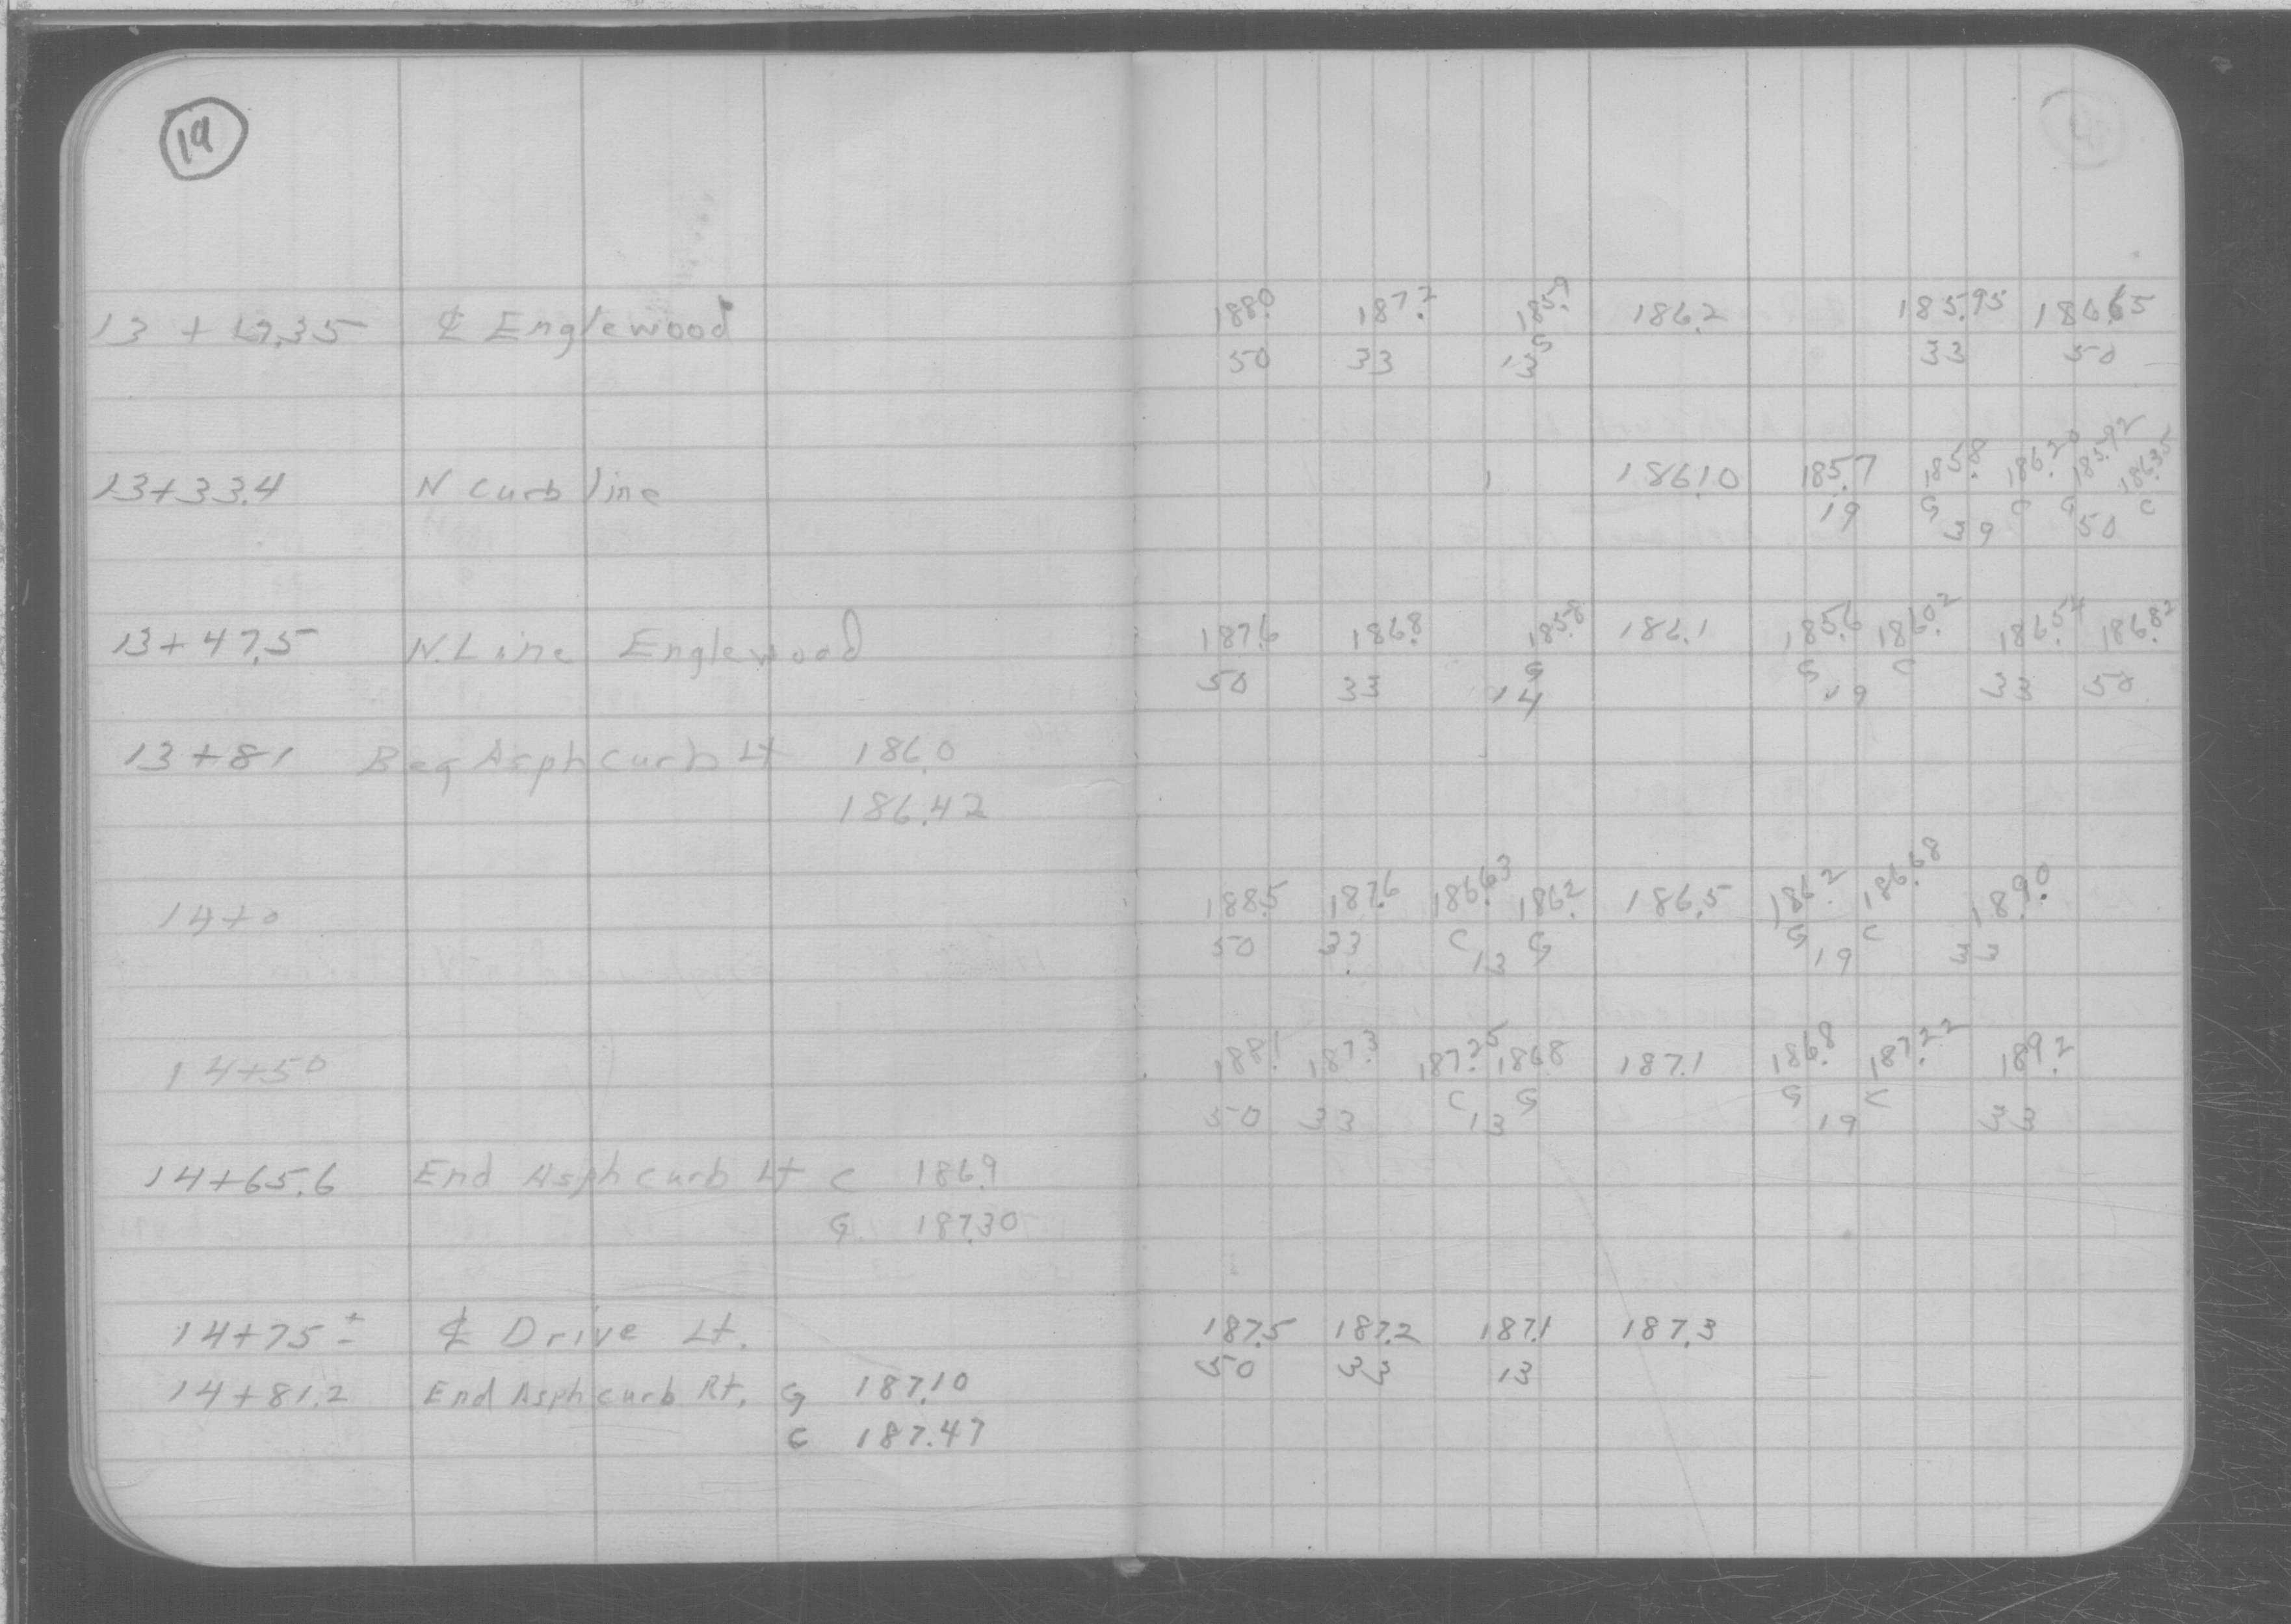 19
13 + 17.35 ℄ Englewood 188.0 187.2 185.9 186.2 185.95 186.65
50 33 13 G 33 50
13+33.4 N Curb line 186.0 185.7 185.8 186.20 185.92 186.35
19 G 39 C G 50 C
13+47.5 N. Line Englewood 187.6 186.8 185.8 186.1 185.6 186.02 186.54 186.82
50 33 G 14 G 19 C 33 50
13+81 Beg Asph Curb Lt 186.0
186.42
14+0 188.5 187.6 186.63 186.2 186.5 186.2 186.68 189.0
50 33 C 13 G G 19 C 33
14+50 188.1 187.3 187.25 186.8 187.1 186.8 187.22 189.2
50 33 C 13 G G 19 C 33
14+65.6 End Asph curb Lt C 186.9
G 187.30
14+75± ℄ Drive Lt. 187.5 187.2 187.1 187.3
50 33 13
14+81.2 End Asph curb Rt. G 187.10
C 187.47